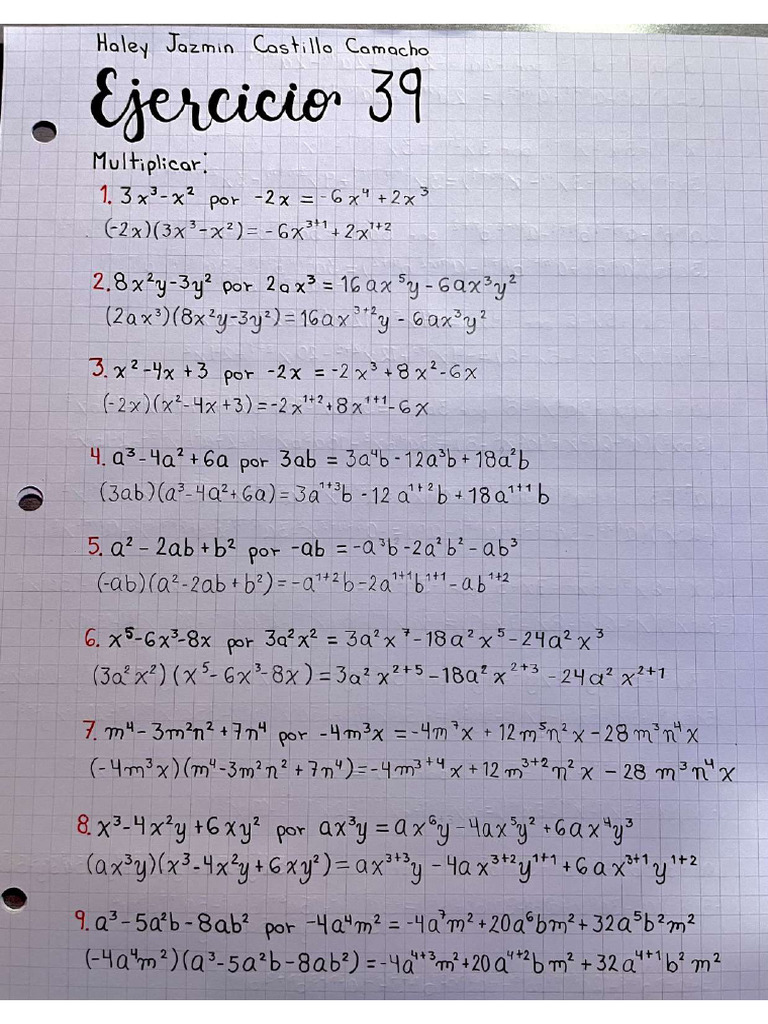 Haley Jazmin Castillo Camacho
Ejercicio 39
Multiplicar:
1. 3x³-x² por -2x = -6x⁴ + 2x³
(-2x)(3x³-x²) = -6x³⁺¹ + 2x¹⁺²
2. 8x²y-3y² por 2ax³ = 16ax⁵y - 6ax³y²
(2ax³)(8x²y-3y²) = 16ax³⁺²y - 6ax³y²
3. x²-4x+3 por -2x = -2x³ + 8x² - 6x
(-2x)(x²-4x+3) = -2x¹⁺² + 8x¹⁺¹ - 6x
4. a³-4a²+6a por 3ab = 3a⁴b - 12a³b + 18a²b
(3ab)(a³-4a²+6a) = 3a¹⁺³b - 12a¹⁺²b + 18a¹⁺¹b
5. a² - 2ab + b² por -ab = -a³b - 2a²b² - ab³
(-ab)(a²-2ab+b²) = -a¹⁺²b - 2a¹⁺¹b¹⁺¹ - ab¹⁺²
6. x⁵-6x³-8x por 3a²x² = 3a²x⁷ - 18a²x⁵ - 24a²x³
(3a²x²)(x⁵-6x³-8x) = 3a²x²⁺⁵ - 18a²x²⁺³ - 24a²x²⁺¹
7. m⁴-3m²n²+7n⁴ por -4m³x = -4m⁷x + 12m⁵n²x - 28m³n⁴x
(-4m³x)(m⁴-3m²n²+7n⁴) = -4m³⁺⁴x + 12m³⁺²n²x - 28m³n⁴x
8. x³-4x²y+6xy² por ax³y = ax⁶y - 4ax⁵y² + 6ax⁴y³
(ax³y)(x³-4x²y+6xy²) = ax³⁺³y - 4ax³⁺²y¹⁺¹ + 6ax³⁺¹y¹⁺²
9. a³-5a²b-8ab² por -4a⁴m² = -4a⁷m² + 20a⁶bm² + 32a⁵b²m²
(-4a⁴m²)(a³-5a²b-8ab²) = -4a⁴⁺³m² + 20a⁴⁺²bm² + 32a⁴⁺¹b²m²